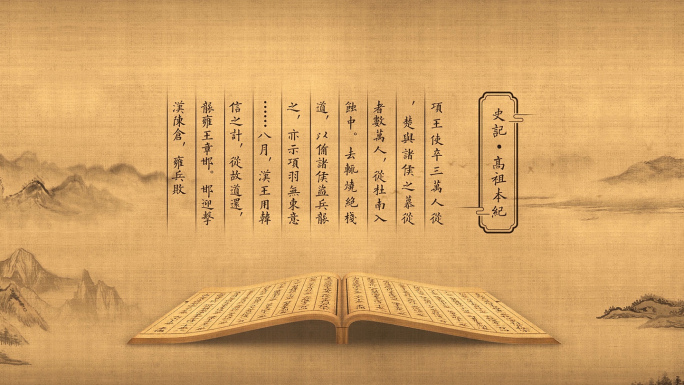 史記·高祖本紀
項王使卒三萬人從
，楚與諸侯之慕從
者數萬人，從杜南入
蝕中。去輒燒絕棧
道，以備諸侯盜兵襲
之，亦示項羽無東意
……八月，漢王用韓
信之計，從故道還，
襲雍王章邯。邯迎擊
漢陳倉，雍兵敗